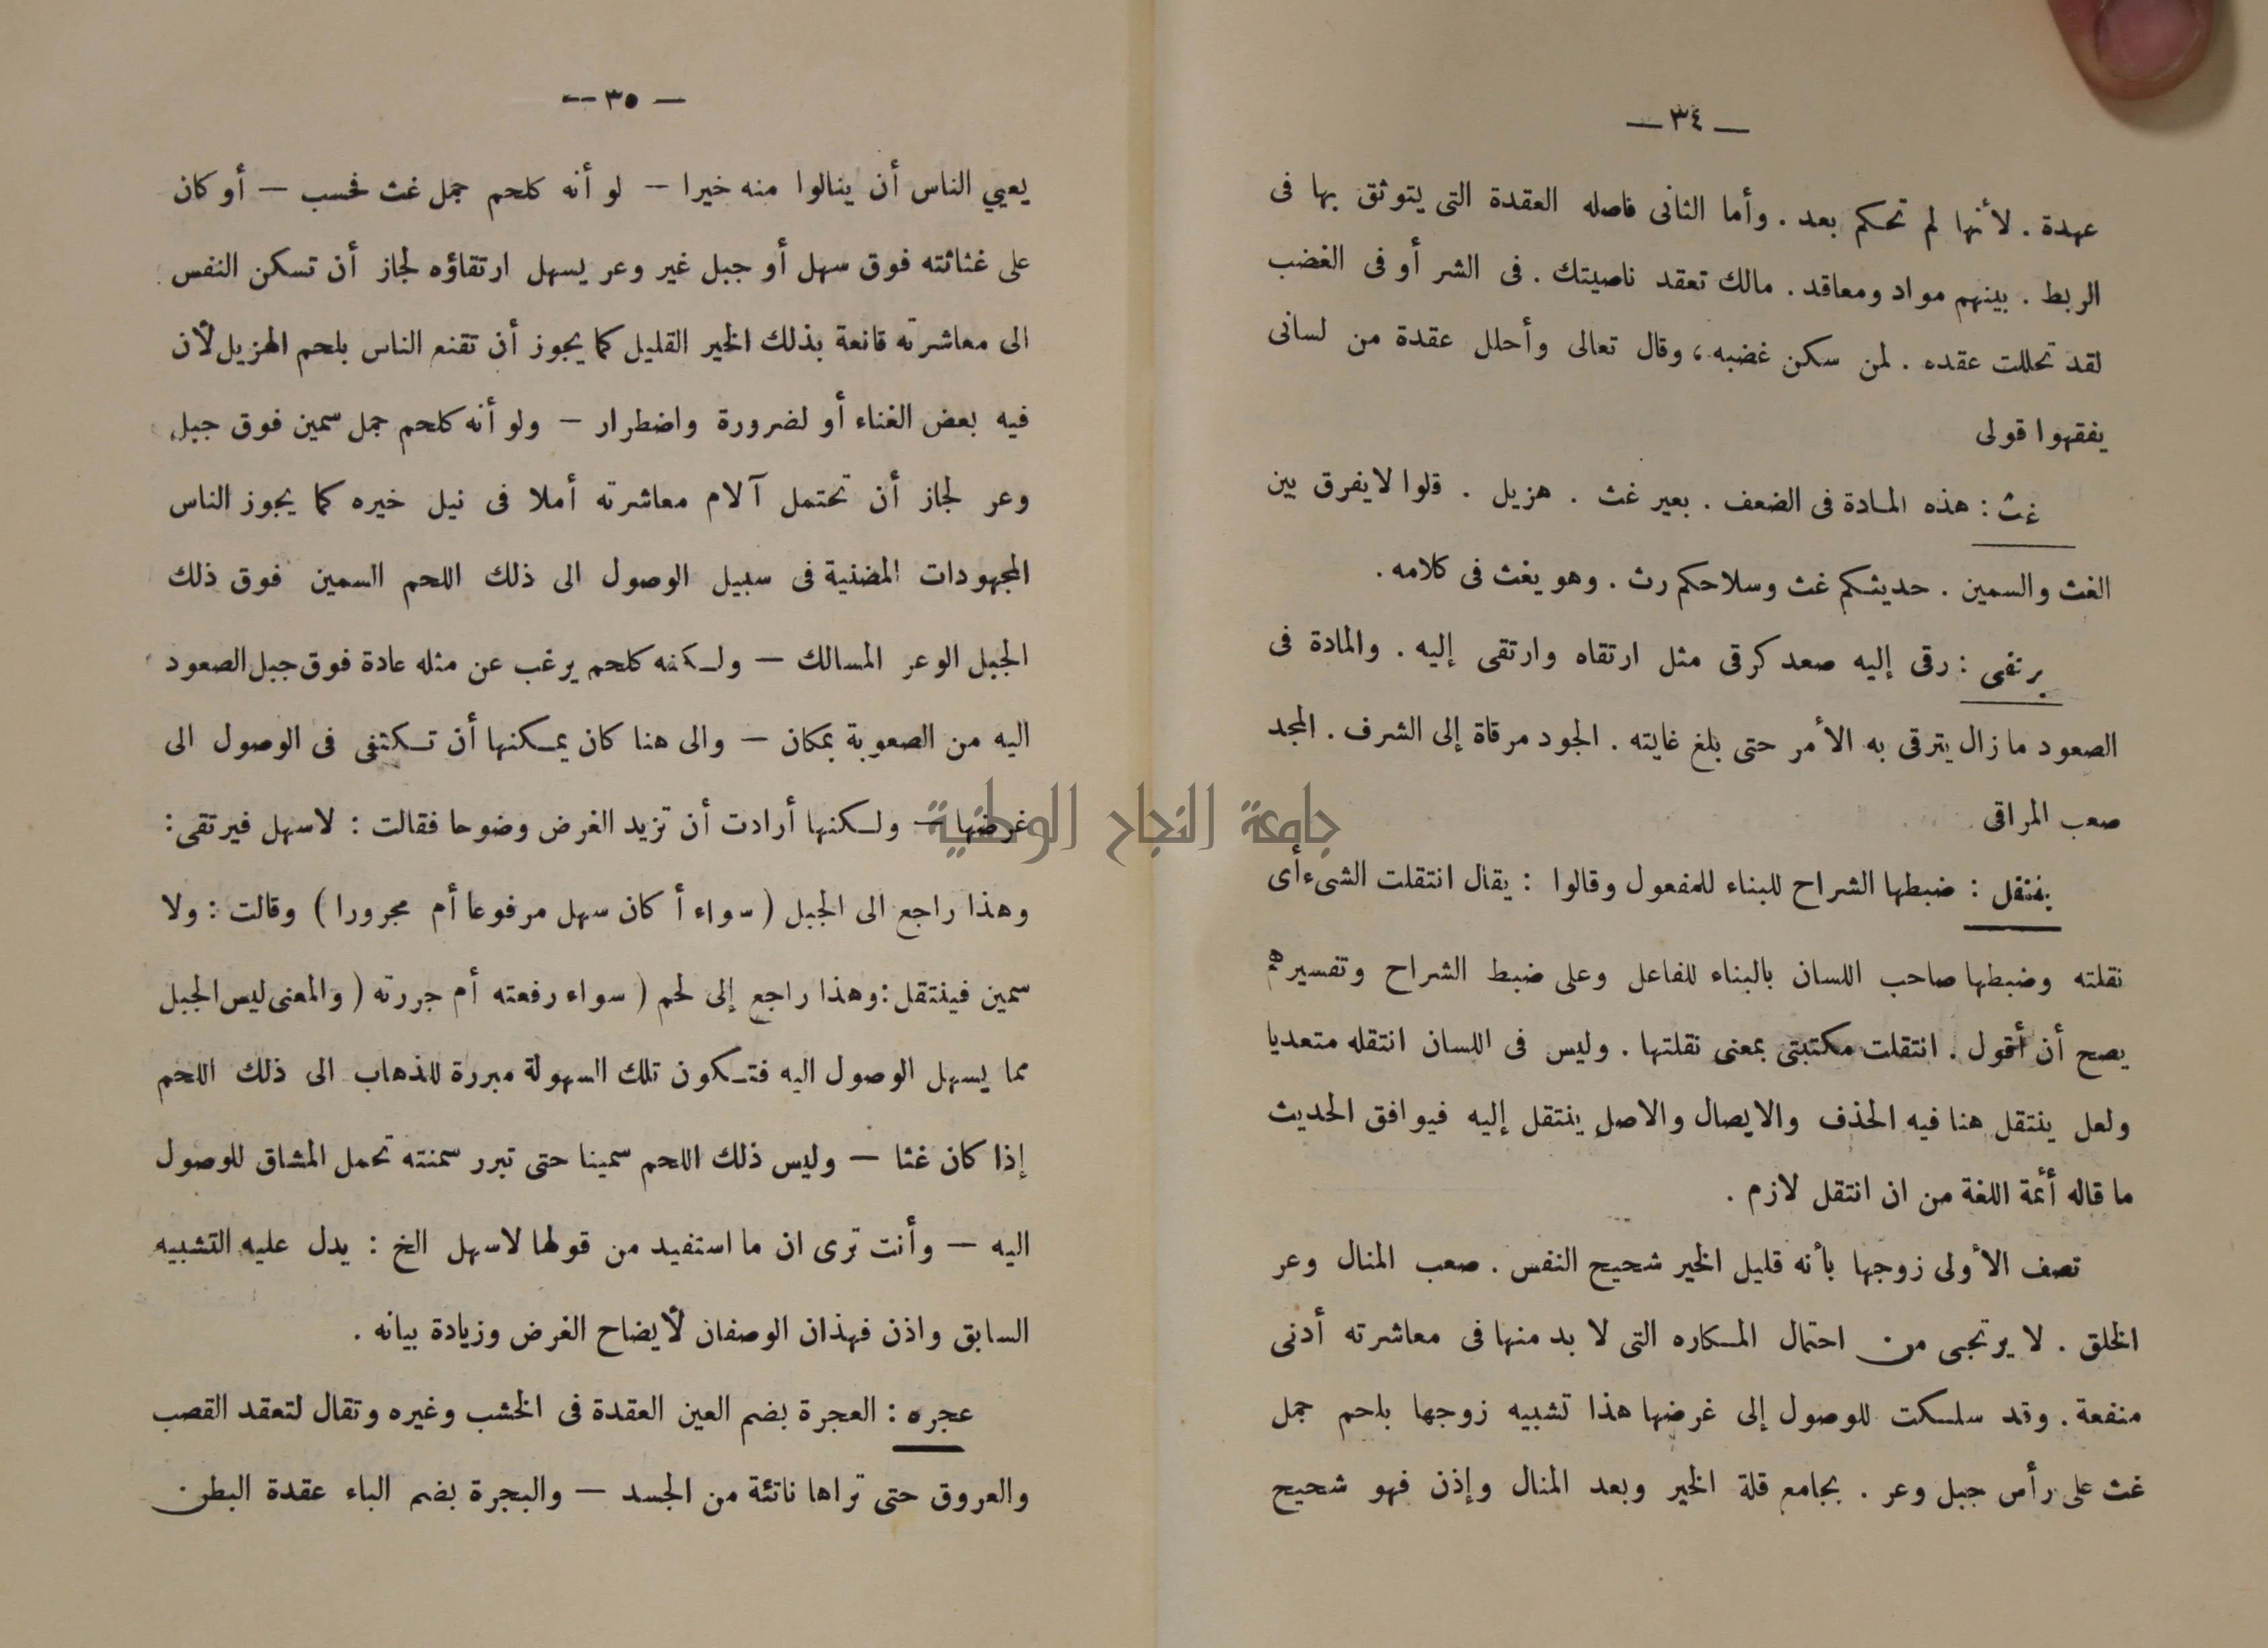 — ٣٤ —
عهدة . لأنها لم تحكم بعد . وأما الثانى فاصله العقدة التى يتوثق بها فى
الربط . بينهم مواد ومعاقد . مالك تعقد ناصيتك . فى الشر أو فى الغضب
لقد تحللت عقده . لمن سكن غضبه ، وقال تعالى وأحلل عقدة من لسانى
يفقهوا قولى
غث : هذه المادة فى الضعف . بعير غث . هزيل . قلوا لا يفرق بين
الغث والسمين . حديثكم غث وسلاحكم رث . وهو يغث فى كلامه .
يرتقى : رقى إليه صعد كرقى مثل ارتقاه وارتقى إليه . والمادة فى
الصعود ما زال يترقى به الأمر حتى بلغ غايته . الجود مرقاة إلى الشرف . المجد
صعب المراقى
ينتقل : ضبطها الشراح للبناء للمفعول وقالوا : يقال انتقلت الشىء أى
نقلته وضبطها صاحب اللسان بالبناء للفاعل وعلى ضبط الشراح وتفسيرهم
يصح أن أقول . انتقلت مكتبتى بمعنى نقلتها . وليس فى اللسان انتقله متعديا
ولعل ينتقل هنا فيه الحذف والايصال والاصل ينتقل إليه فيوافق الحديث
ما قاله أئمة اللغة من ان انتقل لازم .
تصف الأولى زوجها بأنه قليل الخير شحيح النفس . صعب المنال وعر
الخلق . لا يرتجى من احتمال المكاره التى لا بد منها فى معاشرته أدنى
منفعة . وقد سلكت للوصول إلى غرضها هذا تشبيه زوجها بلحم جمل
غث على رأس جبل وعر . بجامع قلة الخير وبعد المنال وإذن فهو شحيح
— ٣٥ —
يعيي الناس أن ينالوا منه خيرا — لو أنه كلحم جمل غث فحسب — أو كان
على غثاثته فوق سهل أو جبل غير وعر يسهل ارتقاؤه لجاز أن تسكن النفس
الى معاشرته قانعة بذلك الخير القليل كما يجوز أن تقنع الناس بلحم الهزيل لأن
فيه بعض الغناء أو لضرورة واضطرار — ولو أنه كلحم جمل سمين فوق جبل
وعر لجاز أن تحتمل آلام معاشرته أملا فى نيل خيره كما يجوز الناس
المجهودات المضنية فى سبيل الوصول الى ذلك اللحم السمين فوق ذلك
الجبل الوعر المسالك — ولكنه كلحم يرغب عن مثله عادة فوق جبل الصعود
اليه من الصعوبة بمكان — والى هنا كان يمكنها أن تكتفى فى الوصول الى
غرضها — ولكنها أرادت أن تزيد الغرض وضوحا فقالت : لاسهل فيرتقى :
وهذا راجع الى الجبل ( سواء أ كان سهل مرفوعا أم مجرورا ) وقالت : ولا
سمين فينتقل : وهذا راجع إلى لحم ( سواء رفعته أم جررته ( والمعنى ليس الجبل
مما يسهل الوصول اليه فتكون تلك السهولة مبررة للذهاب الى ذلك اللحم
إذا كان غثا — وليس ذلك اللحم سمينا حتى تبرر سمنته تحمل المشاق للوصول
اليه — وأنت ترى ان ما استفيد من قولها لاسهل الخ : يدل عليه التشبيه
السابق واذن فهذان الوصفان لأيضاح الغرض وزيادة بيانه .
عجره : العجرة بضم العين العقدة فى الخشب وغيره وتقال لتعقد القصب
والعروق حتى تراها ناتئة من الجسد — والبجرة بضم الباء عقدة البطن
جامعة النجاح الوطنية